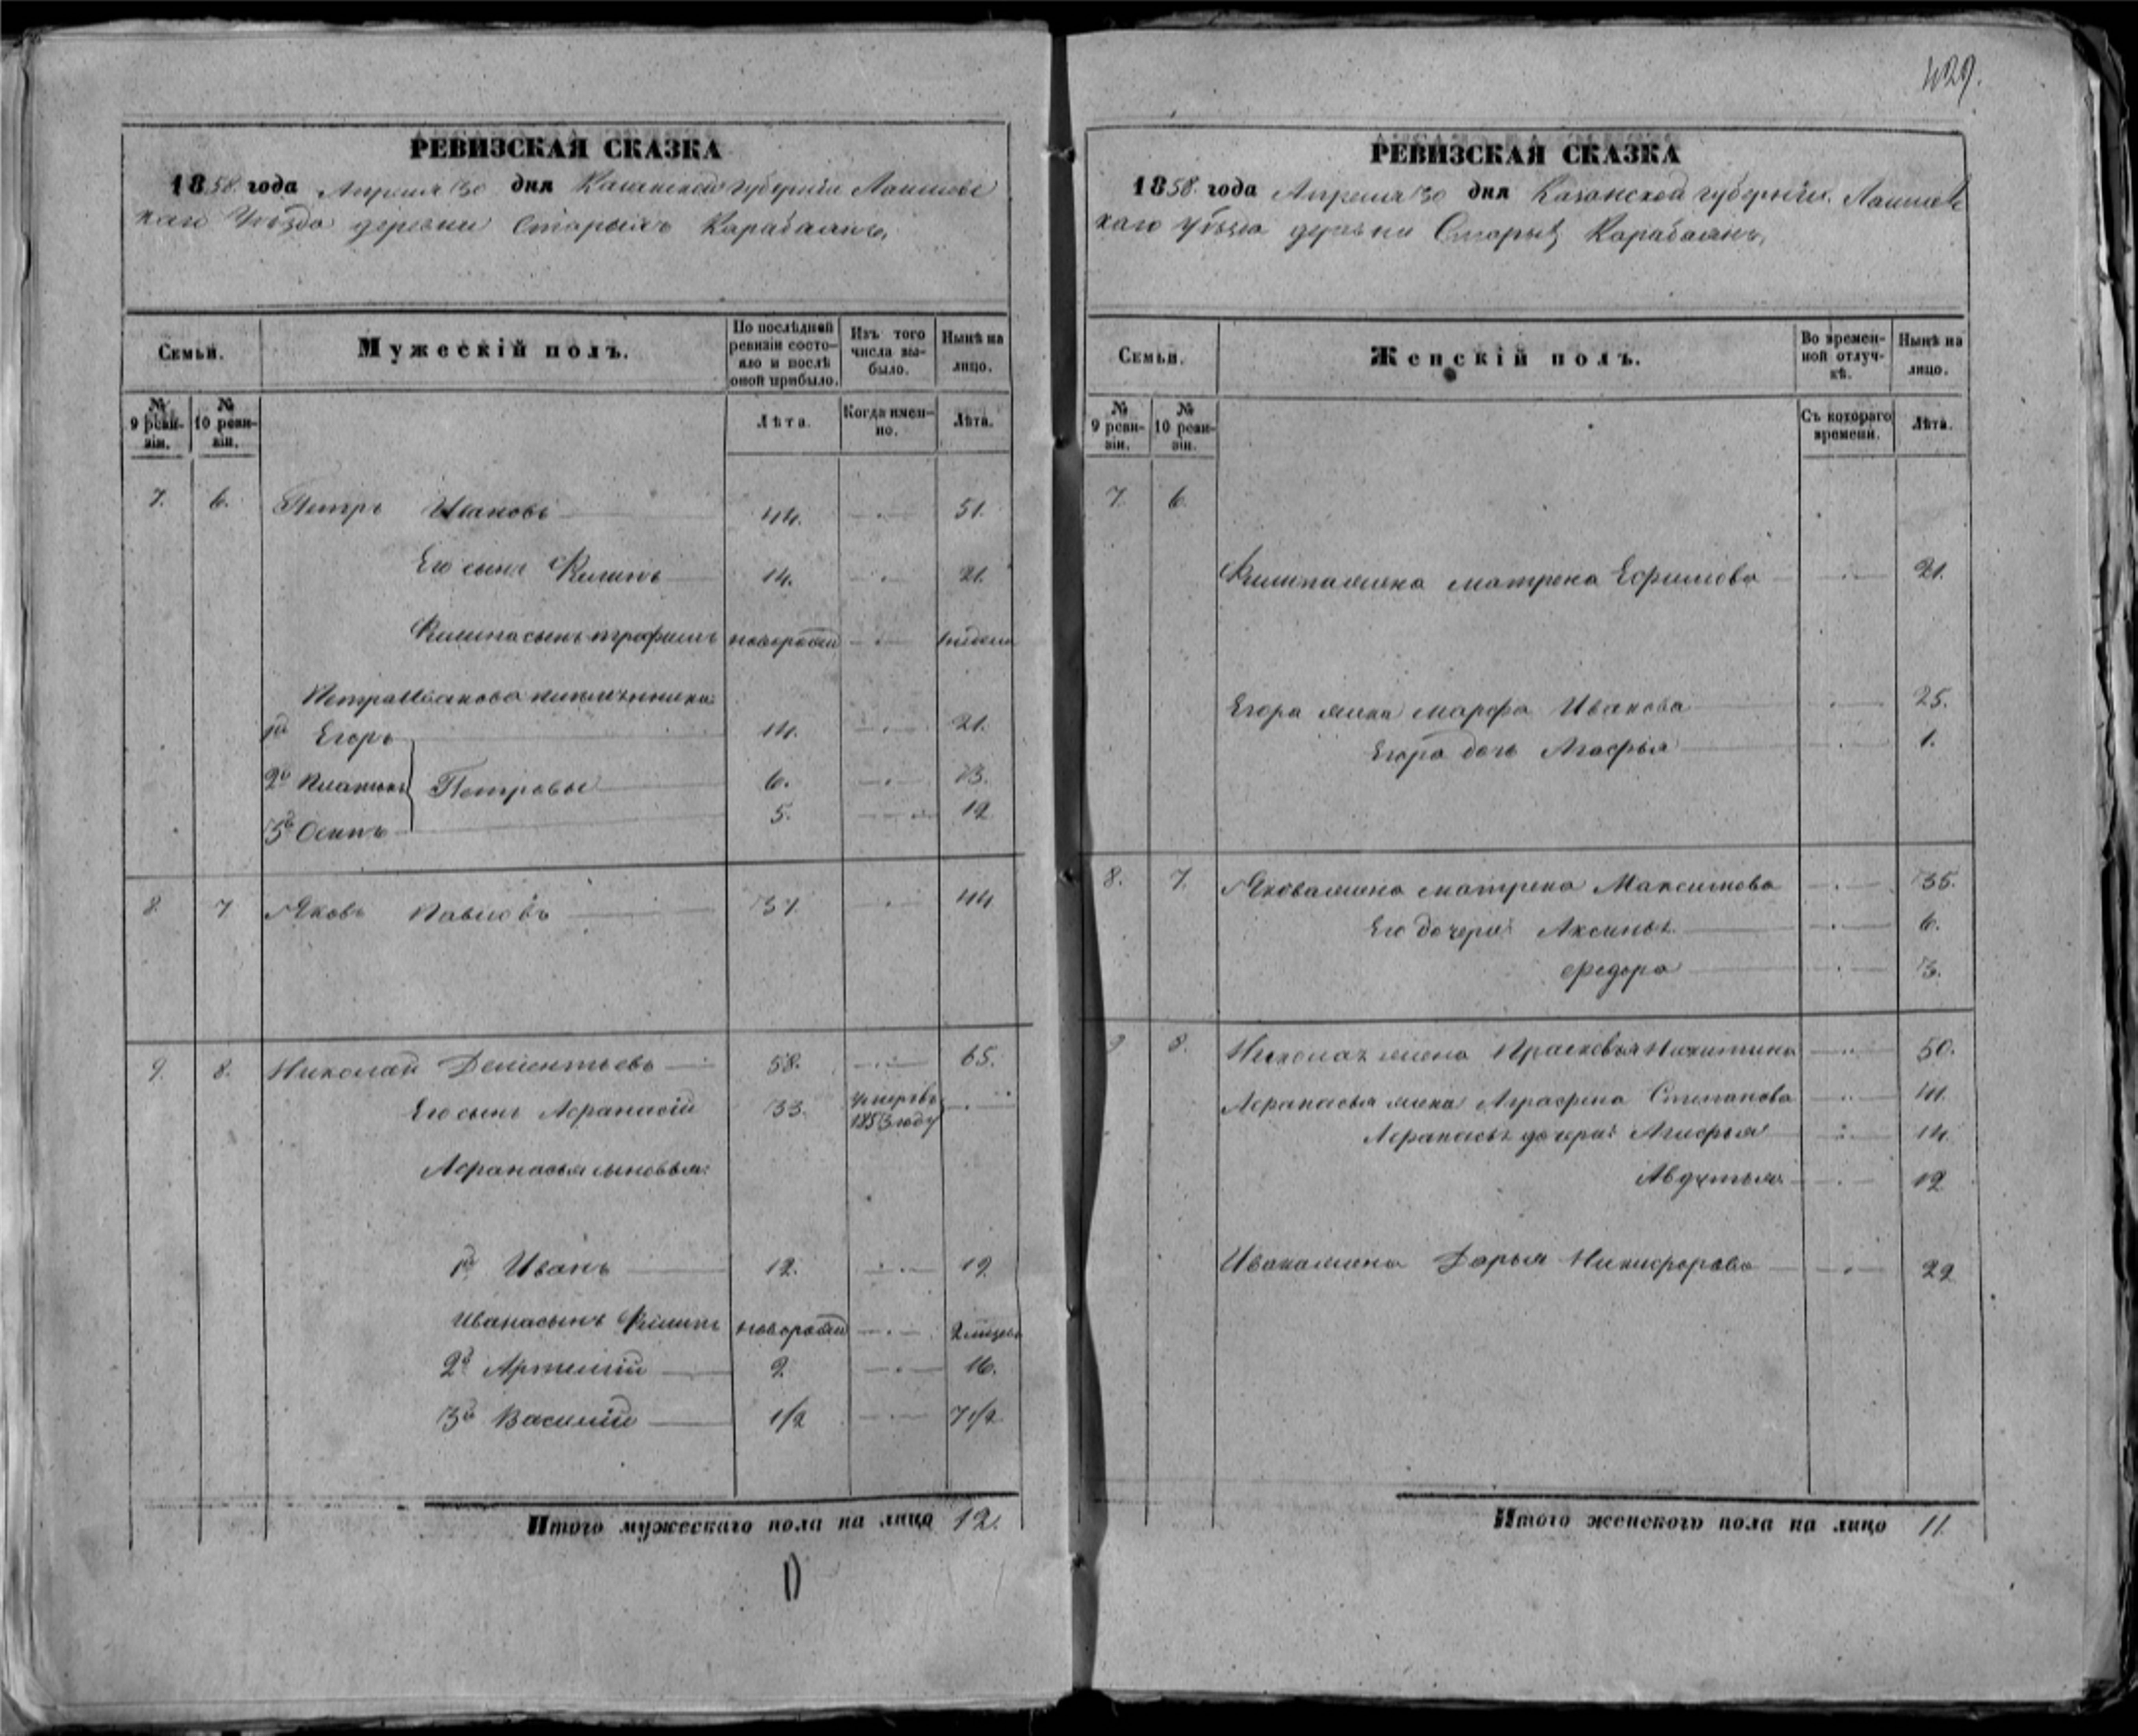 429.
РЕВИЗСКАЯ СКАЗКА
1858 года Апреля 30 дня Казанской губернии Лаишевс
каго Уѣзда деревни Старыхъ Карабаянъ,
Семьи.
Мужескій полъ.
По послѣдней ревизіи состо-яло и послѣ оной прибыло.
Изъ того числа вы-было.
Нынѣ на лицо.
№ 9 реви-зіи.
№ 10 реви-зіи.
Лѣта.
Когда имен-но.
Лѣта.
7. 6. Петръ Ивановъ 44. 51.
Его сынъ Филипъ 14. 21.
Филипа сынъ Трофимъ новорожд
Петра Иванова племянники:
1й Егоръ 14. 21.
2й Платонъ Петровы 6. 13.
3й Осипъ 5. 12
8. 7 Яковъ Павловъ 37. 44
9. 8. Николай Дементьевъ 58. 65.
Его сынъ Афанасій 33. умеръ въ 1853 году
Афанасья сыновья:
1й Иванъ 12. 19
Ивана сынъ Филипъ новорожд 2 месеца
2й Артемій 9. 16.
3й Василій 1/2 7 1/2
Итого мужескаго пола на лицо 12.
РЕВИЗСКАЯ СКАЗКА
1858 года Апреля 30 дня Казанской губерніи. Лаишевс
каго уѣзда деревни Старыхъ Карабаянъ,
Семьи.
Женскій полъ.
Во времен-ной отлуч-кѣ.
Нынѣ на лицо.
№ 9 реви-зіи.
№ 10 реви-зіи.
Съ котораго времени.
Лѣта.
7. 6.
Филипа жена Матрена Ефимова 21.
Егора жена Марфа Иванова 25.
Егора дочь Агафья 1.
8. 7. Якова жена Матрена Максимова 35.
Его дочери: Аксинья 6.
Федора 3.
9 8. Николая жена Прасковья Никитина 50.
Афанасья жена Аграфена Степанова 41.
Афанасья дочери: Агафья 14.
Авдотья 12
Ивана жена Дарья Никифорова 22
Итого женскаго пола на лицо 11.